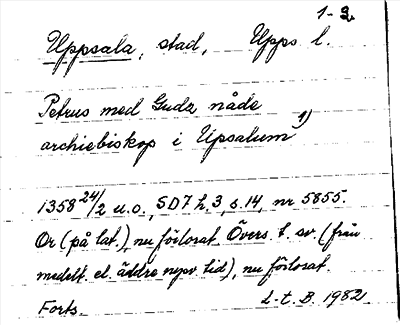 1-2.
Uppsala, stad, Upps l.
Petrus med Gudz nåde
archiebiskop i Upsalum 1)
1358 24/2 u.o., SD7 h.3, s.14, nr 5855.
Or (på lat.), nu förlorat. Övers. t. sv. (från
medelt. el. äldre nysv. tid), nu förlorat.
Forts. L-t. B. 1982